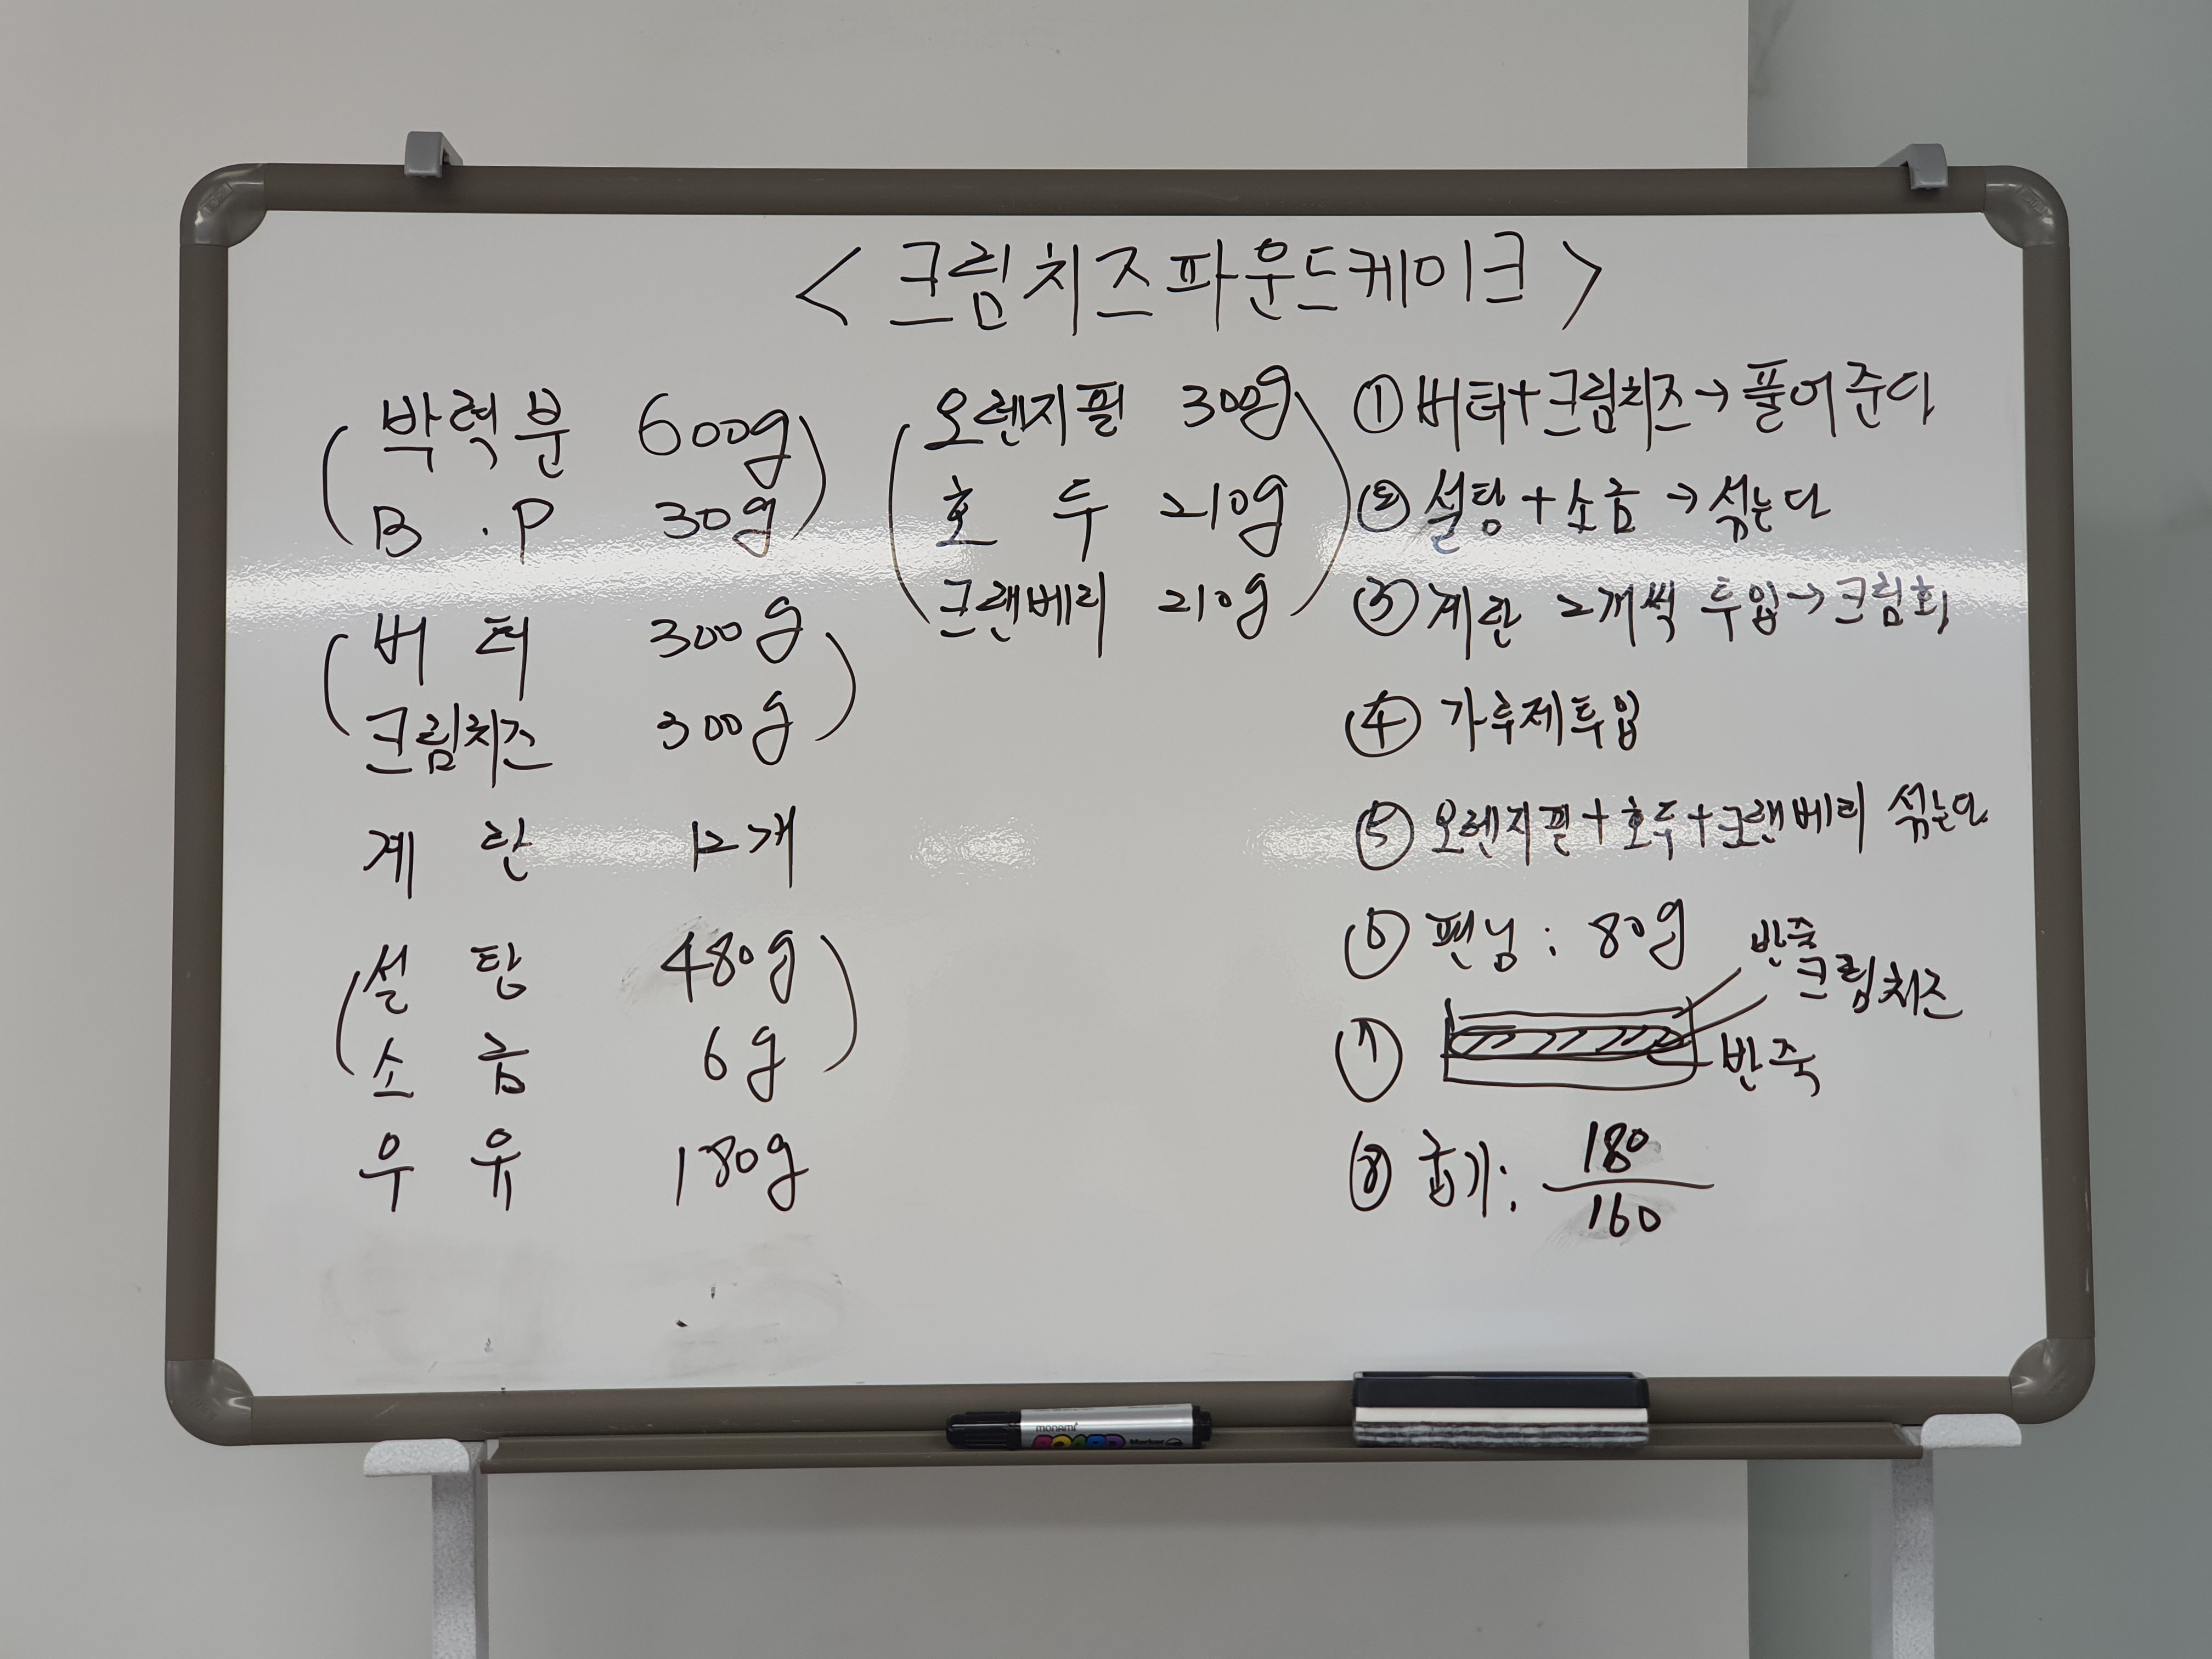 <크림치즈파운드케이크>
박력분 600g
B.P 30g
버터 300g
크림치즈 300g
계란 12개
설탕 480g
소금 6g
우유 180g
오렌지필 300g
호두 210g
크랜베리 210g
① 버터+크림치즈→풀어준다
② 설탕+소금→섞는다
③ 계란 2개씩 투입→크림화
④ 가루제투입
⑤ 오렌지필+호두+크랜베리 섞는다
⑥ 팬닝: 80g
⑦ 반죽
크림치즈
반죽
⑧ 굽기: 180
160
monami
BOARD Marker